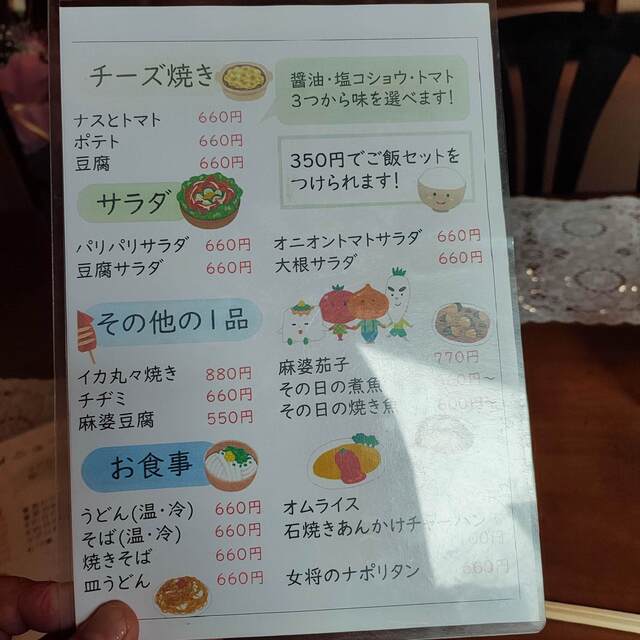 チーズ焼き
醤油・塩コショウ・トマト
3つから味を選べます!
ナスとトマト 660円
ポテト 660円
豆腐 660円
350円でご飯セットを
つけられます!
サラダ
パリパリサラダ 660円
オニオントマトサラダ 660円
豆腐サラダ 660円
大根サラダ 660円
その他の1品
イカ丸々焼き 880円
チヂミ 660円
麻婆豆腐 550円
麻婆茄子 770円
その日の煮魚
その日の焼き魚 600円~
お食事
うどん(温・冷) 660円
そば(温・冷) 660円
焼きそば 660円
皿うどん 660円
オムライス
石焼きあんかけチャーハン
女将のナポリタン 660円